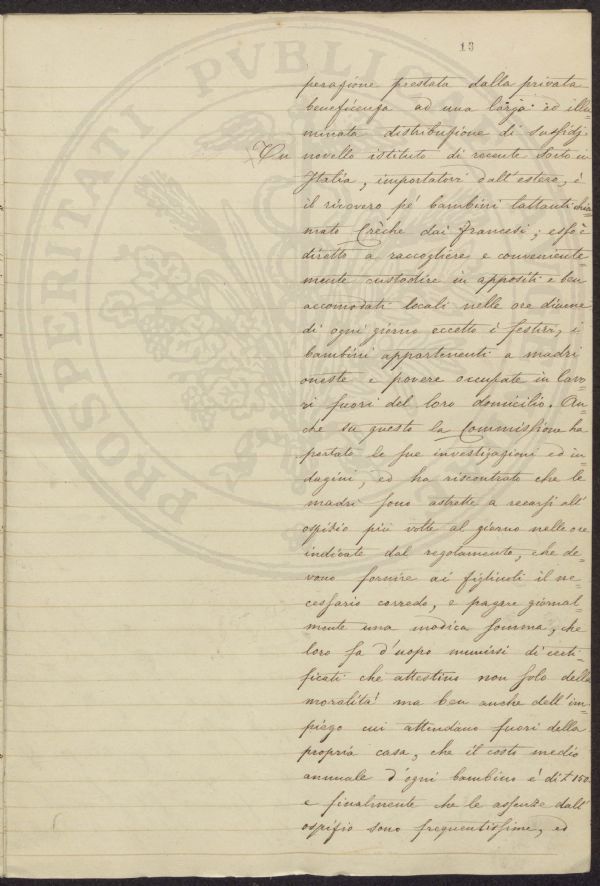 13
PROSPERITATI PVBLICAE
perazione prestata dalla privata
beneficenza ad una larga ed illu=
minata distribuzione di sussidj.
Un novello istituto di recente sorto in
Italia, importatovi dall'estero, è
il ricovero pe' bambini lattanti chia=
mato Crêche dai francesi; esso è
diretto a raccogliere e conveniente=
mente custodire in appositi e ben
accomodati locali nelle ore diurne
di ogni giorno eccetto i festivi, i
bambini appartenenti a madri
oneste e povere occupate in lavo=
ri fuori del loro domicilio. An=
che su questo la Commissione ha
portato le sue investigazioni ed in=
dagini, ed ha riscontrato che le
madri sono astrette a recarsi all'
ospizio più volte al giorno nelle ore
indicate dal regolamento, che de=
vono fornire ai figliuoli il ne=
cessario corredo, e pagare giornal=
mente una modica somma, che
loro fa d'uopo munirsi di certi=
ficati che attestino non solo della
moralità ma ben anche dell'im=
piego cui attendano fuori della
propria casa, che il costo medio
annuale d'ogni bambino è di £ 150.
e finalmente che le assenze dall'
ospizio sono frequentissime, ed